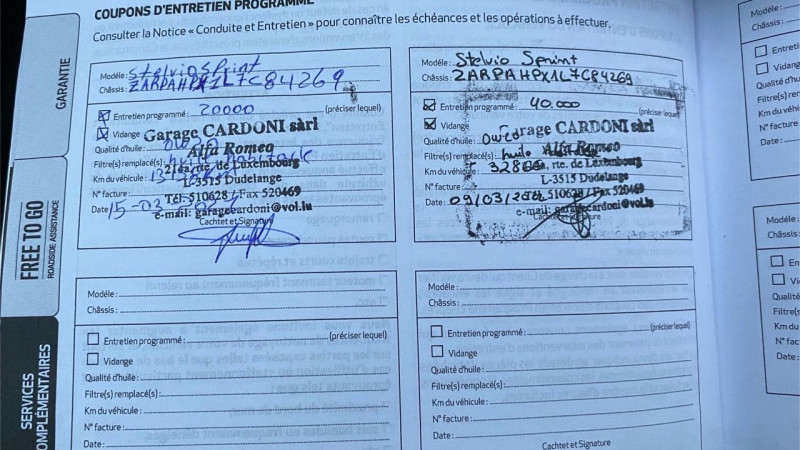 COUPONS D'ENTRETIEN PROGRAMMÉ
Consulter la Notice « Conduite et Entretien » pour connaître les échéances et les opérations à effectuer.
GARANTIE
FREE TO GO
ROADSIDE ASSISTANCE
SERVICES
COMPLÉMENTAIRES
Modèle: Stelvio Sprint
Châssis: ZARPAHPX1L7C84269
Entretien programmé: 20000 (préciser lequel)
Vidange
Qualité d'huile:
Filtre(s) remplacé(s):
Km du véhicule:
N° facture:
Date: 15-03
Garage CARDONI sàrl
Alfa Romeo
21ea, rte. de Luxembourg
L-3515 Dudelange
Tél. 510628 / Fax 520469
e-mail: garagecardoni@vol.lu
Cachet et Signature
Modèle: Stelvio Sprint
Châssis: ZARPAHPX1L7C84269
Entretien programmé: 40.000 (préciser lequel)
Vidange
Qualité d'huile:
Filtre(s) remplacé(s): huile
Km du véhicule:
N° facture:
Date: 09/03/
Garage CARDONI sàrl
Alfa Romeo
rte. de Luxembourg
L-3515 Dudelange
510628 / Fax 520469
e-mail: garagecardoni@vol.lu
Cachtet et Signature
Modèle:
Châssis:
Entretien programmé: (préciser lequel)
Vidange
Qualité d'huile:
Filtre(s) remplacé(s):
Km du véhicule:
N° facture:
Date:
Modèle:
Châssis:
Entretien programmé: (préciser lequel)
Vidange
Qualité d'huile:
Filtre(s) remplacé(s):
Km du véhicule:
N° facture:
Date:
Cachtet et Signature
Modèle:
Châssis:
Entretien
Vidange
Qualité d'huile
Filtre(s) rempl
Km du véhicule
N° facture
Date:
Modèle:
Châssis: